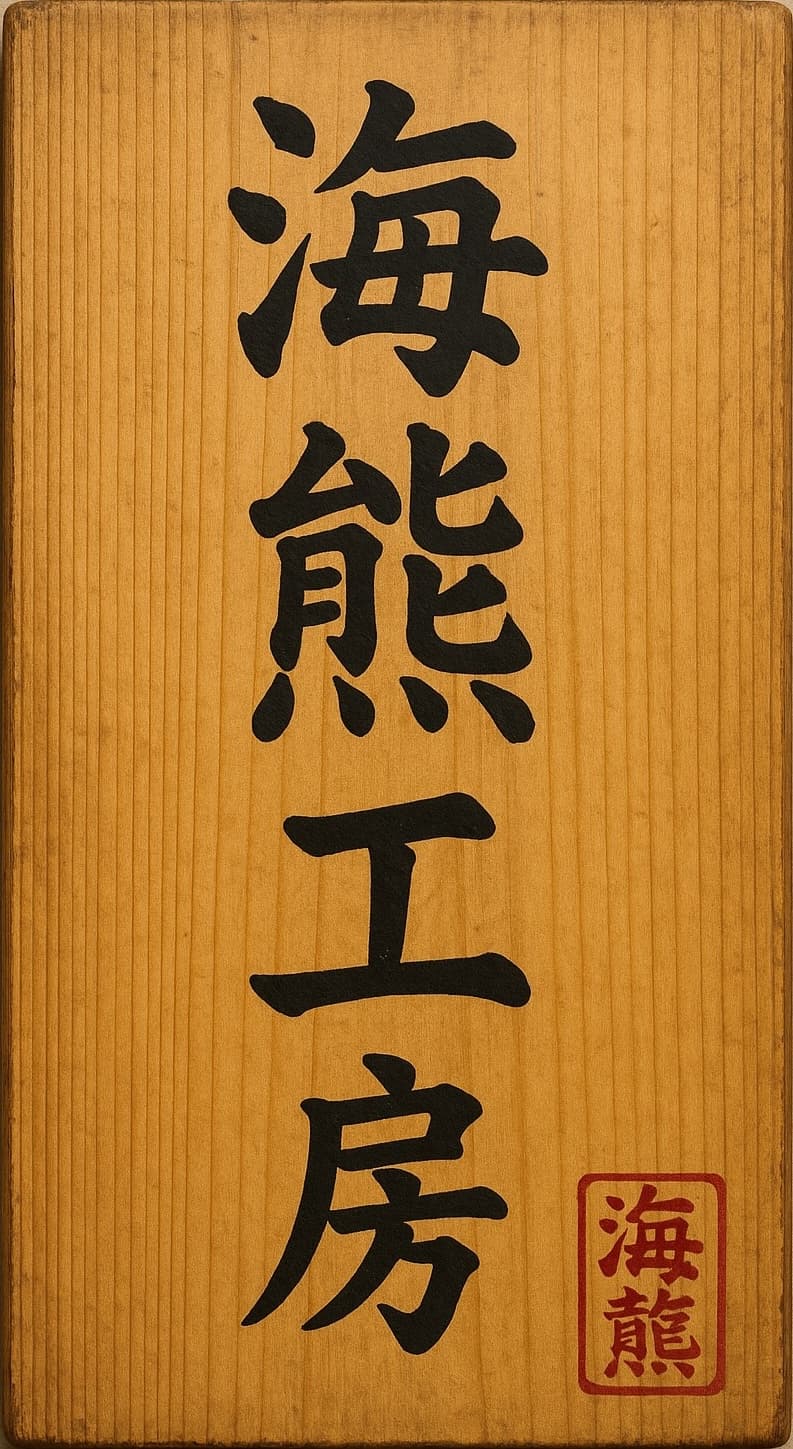 海熊工房
海熊